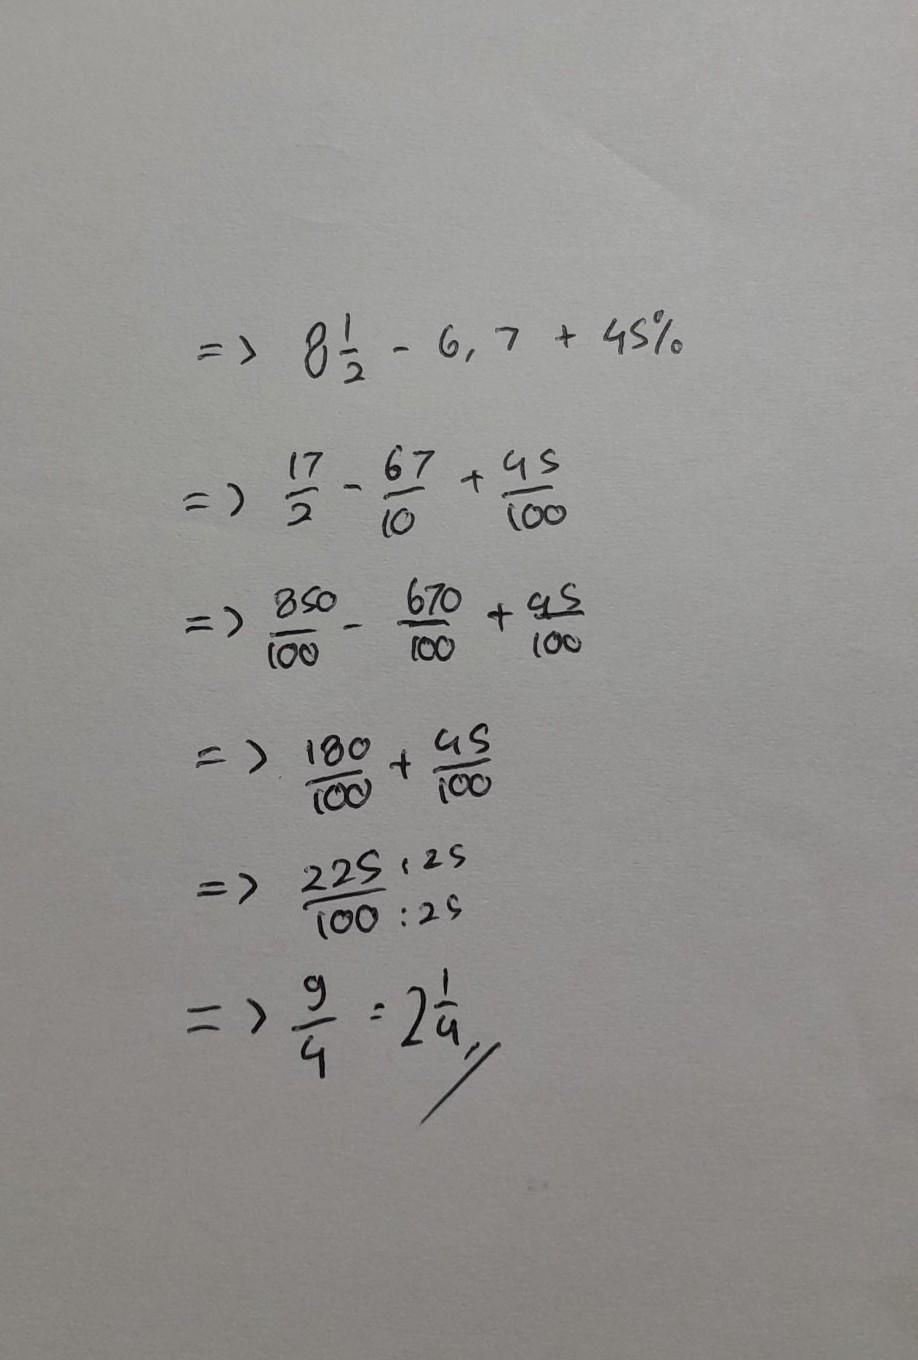 => 8 1/2 - 6,7 + 45%
=> 17/2 - 67/10 + 45/100
=> 850/100 - 670/100 + 45/100
=> 180/100 + 45/100
=> 225 : 25 / 100 : 25
=> 9/4 = 2 1/4 //